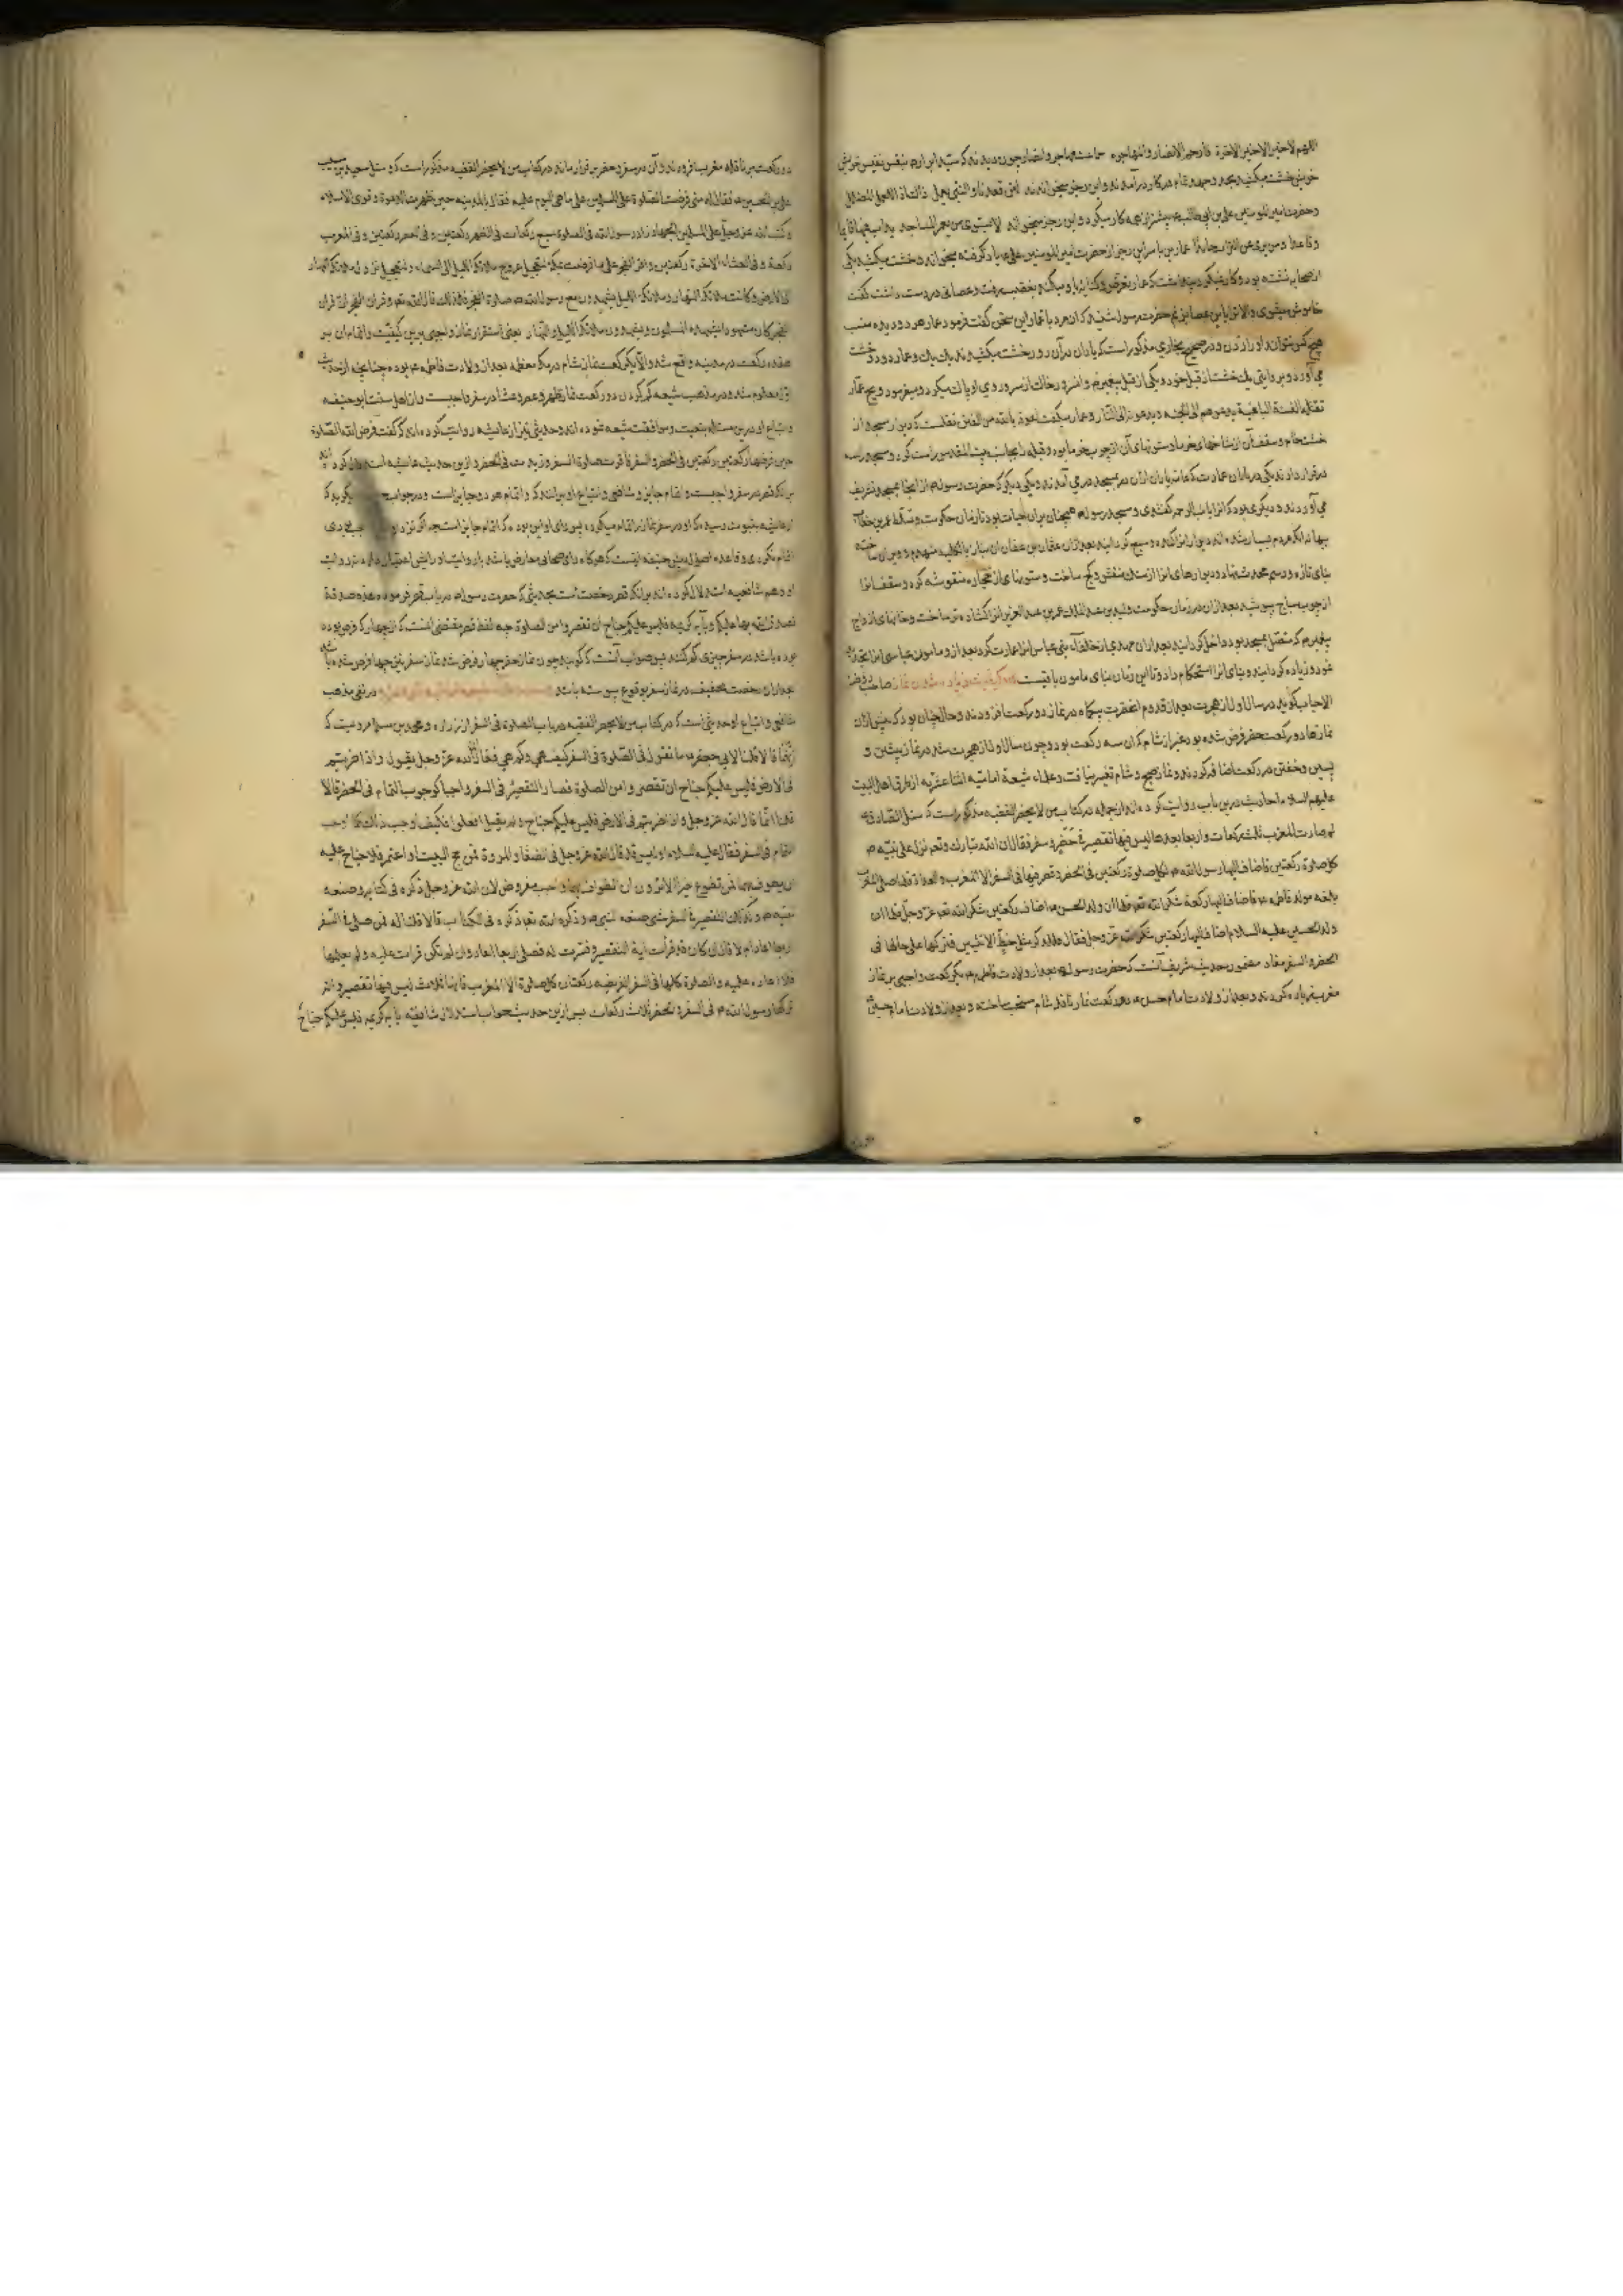 اللهم لاخیر الاخیر الاخرة فارحم الانصار والمهاجره جماعت مهاجر وانصار چون دیدند که سید ابرار بنفس نفیس خویش
خشت میکشد بجد وجهد تمام در کار درآمدند واین رجز میخواندند لئن قعدنا والنبی یعمل ذاک اذ العمل المضلل
وحضرت امیر المومنین علی بن ابی طالب بیشتر از همه کار میکرد واین رجز میخواند لا یستوی من یعمر المساجد یداب فیها قایما
وقاعدا ومن یری عن التراب حایدا عمار بن یاسر این رجز از حضرت امیر المومنین علی یاد گرفته میخواند وخشت میکشید یکی
از صحابه نشسته بود وکار نمیکرد پنداشت که عمار تعرض وکنایه باو میکند بغضب رفت وعصائی در دست داشت گفت
خاموش میشوی والا ترا باین عصا بزنم حضرت رسول شنید که آن مرد با عمار این سخن گفت فرمود عمار هر دو دیده منست
هیچ کس نتواند او را زدن ودر صحیح بخاری مذکور است که یاران در آن روز خشت میکشیدند یک یک وعمار دو دو خشت
می آورد وبروایتی یک خشت از قبل خود ویکی از قبل پیغمبر وآنسرور خاک از سر وروی او پاک میکرد ومیفرمود ویح عمار
تقتله الفئة الباغیة یدعوهم الی الجنه ویدعونه الی النار وعمار میگفت اعوذ بالله من الفتن نقلست که دیوار مسجد از
خشت خام وسقف آن از شاخهای خرما وستونهای آن از چوب خرما بود وقبله بجانب بیت المقدس راست کرد وسه در
در قرار دادند یکی در پایان عمارت که عامه یاران از آن در بمسجد در می آمدند ویکی دیگر که حضرت رسول از آنجا بمسجد تشریف
می آوردند ودیگری بود که آنرا باب الرحمه گفتندی ومسجد رسول همچنان بر آن هیات بود تا زمان حکومت وتسلط عمر بن خطاب
بهانه آنکه مردم بسیار شده اند دیوار آنرا کنده وسیع گردانید بعد از آن عثمان بن عفان آن بنا را بالکلیه منهدم وویران ساخته
بنای تازه ورسم محدث نهاد ودیوارهای آنرا از سنگ منقش وگچ ساخت وستونهای از حجاره منقوشه کرد وسقف آنرا
از چوب ساج پوشید بعد از آن در زمان حکومت ولید بن عبد الملک عمر بن عبد العزیز آنرا گشاده تر ساخت وخانهای ازواج
پیغمبر که متصل بمسجد بود داخل گردانید بعد از آن مهدی از خلفای بنی عباس آنرا عمارت کرد بعد از او مامون عباسی آنرا تجدید
نمود وزیاده گردانید وبنای آنرا استحکام داد وتا این زمان بنای مامون باقیست زیاد شدن نماز صاحب روضة
الاحباب گوید در سال اول از هجرت بعد از قدوم آنحضرت بیکماه در نماز دو رکعت افزودند وحال چنان بود که پیش از آن
نمازها دو رکعت حضر فرض شده بود بغیر از شام که آن سه رکعت بود وچون سال اول از هجرت شد در نماز پیشین و
پسین وخفتن دو رکعت اضافه کردند ونماز صبح وشام تغییر نیافت وعلماء شیعه امامیه اثنا عشریه از طرق اهل البیت
علیهم السلام احادیث درین باب روایت کرده اند از جمله در کتاب من لا یحضر الفقیه مذکور است که سئل الصادق
لم صارت المغرب ثلث رکعات واربعا بعدها لیس فیها تقصیر فی حضر وسفر فقال ان الله تبارک وتعالی نزل علی نبیه
کل صلوة رکعتین فاضاف الیها رسول الله لکل صلوة رکعتین فی الحضر وقصر فیها فی السفر الا المغرب والغداة فلما صلی المغرب
بلغه مولد فاطمه فاضاف الیها رکعة شکرا لله فلما ان ولد الحسن اضاف رکعتین شکرا لله عز وجل فلما ان
ولد الحسین علیه السلام اضاف الیها رکعتین شکرا لله عز وجل فقال للذکر مثل حظ الانثیین فترکها علی حالها فی
الحضر والسفر مفاد مضمون حدیث شریف آنست که حضرت رسول بعد از ولادت فاطمه یکرکعت واجبی بر نماز
مغرب زیاده کردند وبعد از ولادت امام حسن دو رکعت نماز نافله شام سنت ساخته وبعد از ولادت امام حسین
دو رکعت بر نافله مغرب افزودند وآن در سفر وحضر برقرار ماند در کتاب من لا یحضر الفقیه مذکور است که وسئل سعید بن مسیب
علی بن الحسین فقال له متی فرضت الصلوة علی المسلمین علی ما هی الیوم علیه فقال بالمدینه حین ظهرت الدعوة وقوی الاسلام
وکتب الله عز وجل علی المسلمین الجهاد زاد رسول الله فی الصلوة سبع رکعات فی الظهر رکعتین وفی العصر رکعتین وفی المغرب
رکعة وفی العشاء الاخرة رکعتین واقر الفجر علی ما فرضت بمکه لتعجیل عروج ملائکة اللیل الی السماء ولتعجیل نزول ملائکة النهار
الی الارض وکانت ملائکة النهار وملائکة اللیل یشهدون مع رسول الله صلوة الفجر فلذلک قال الله وقران الفجر ان قران
الفجر کان مشهودا یشهده المسلمون ویشهده ملائکة اللیل والنهار یعنی استقرار نماز واجبی برین کیفیت واتمام آن بر
هفده رکعت در مدینه واقع شد والا یکرکعت نماز شام در مکه معظمه بعد از ولادت فاطمه بوده چنانچه از حدیث
اول معلوم شد ودر مذهب شیعه کم کردن دو رکعت نماز ظهر وعصر وعشا در سفر واجبست واز اهل سنت ابو حنیفه
واتباع او درین مسئله تبعیت وموافقت شیعه نموده اند وحدیثی نیز از عایشه روایت کرده اند که گفت فرض الله الصلوة
حین فرضها رکعتین رکعتین فی الحضر والسفر فاقرت صلوة السفر وزیدت فی الحضر وازین حدیث عایشه استدلال کرده اند
برآنکه قصر در سفر واجبست واتمام جایز وشافعی واتباع او برآنند که واتمام هر دو جایز است ودر جواب میگوید که
از عایشه بثبوت رسیده که او در سفر نماز را تمام میکرده پس رای او این بوده که اتمام جایز است چه اگر نزد او
تمام نکردی وقاعده اصول ابو حنیفه اینست که هرگاه رای صحابی معارض باشد با روایت او رایش اعتبار دارد نه روایت
او وهم شافعیه استدلال کرده اند برآنکه قصر رخصت است بحدیثی که حضرت رسول در باب قصر فرموده هذه صدقة
تصدق الله بها علیکم وبآیه کریمه فلیس علیکم جناح ان تقصروا من الصلوة چه لفظ قصر مقتضی آنست که از چهار که فرض بوده
بوده باشد در سفر چیزی کم کنند پس صواب آنست که گویند چون نماز حضر چهار فرض شد نماز سفر نیز چهار فرض شده باشد
بعد از آن رخصت تخفیف در نماز سفر بوقوع پیوسته باشد در نفی مذهب
شافعی واتباع او حدیثی است که در کتاب من لا یحضر الفقیه در باب الصلوة فی السفر از زراره ومحمد بن مسلم مرویست که
انهما قالا قلنا لابی جعفر ما تقول فی الصلوة فی السفر کیف هی وکم هی فقال ان الله عز وجل یقول واذا ضربتم
فی الارض فلیس علیکم جناح ان تقصروا من الصلوة فصار التقصیر فی السفر واجبا کوجوب التمام فی الحضر قالا
قلنا انما قال الله عز وجل واذا ضربتم فی الارض فلیس علیکم جناح ولم یقل افعلوا فکیف اوجب ذلک کما اوجب
التمام فی السفر فقال علیه السلام او لیس قد قال الله عز وجل فی الصفا والمروة فمن حج البیت او اعتمر فلا جناح علیه
ان یطوف بهما فمن تطوع خیرا الا ترون ان الطواف بهما واجب مفروض لان الله عز وجل ذکره فی کتابه وصنعه
نبیه وکذلک التقصیر فی السفر شئ صنعه النبی وذکره الله تعالی ذکره فی الکتاب قالا قلنا له فمن صلی فی السفر
اربعا اعاد ام لا قال ان کان قد قرأت علیه آیة التقصیر وفسرت له فصلی اربعا اعاد وان لم تکن قرأت علیه ولم یعلمها
فلا اعاده علیه والصلوة کلها فی السفر الفریضه رکعتان کل صلوة الا المغرب فانها ثلاث لیس فیها تقصیر
ترکها رسول الله فی السفر والحضر ثلاث رکعات پس ازین حدیث جواب استدلال شافعیه بآیه کریمه فلیس علیکم جناح